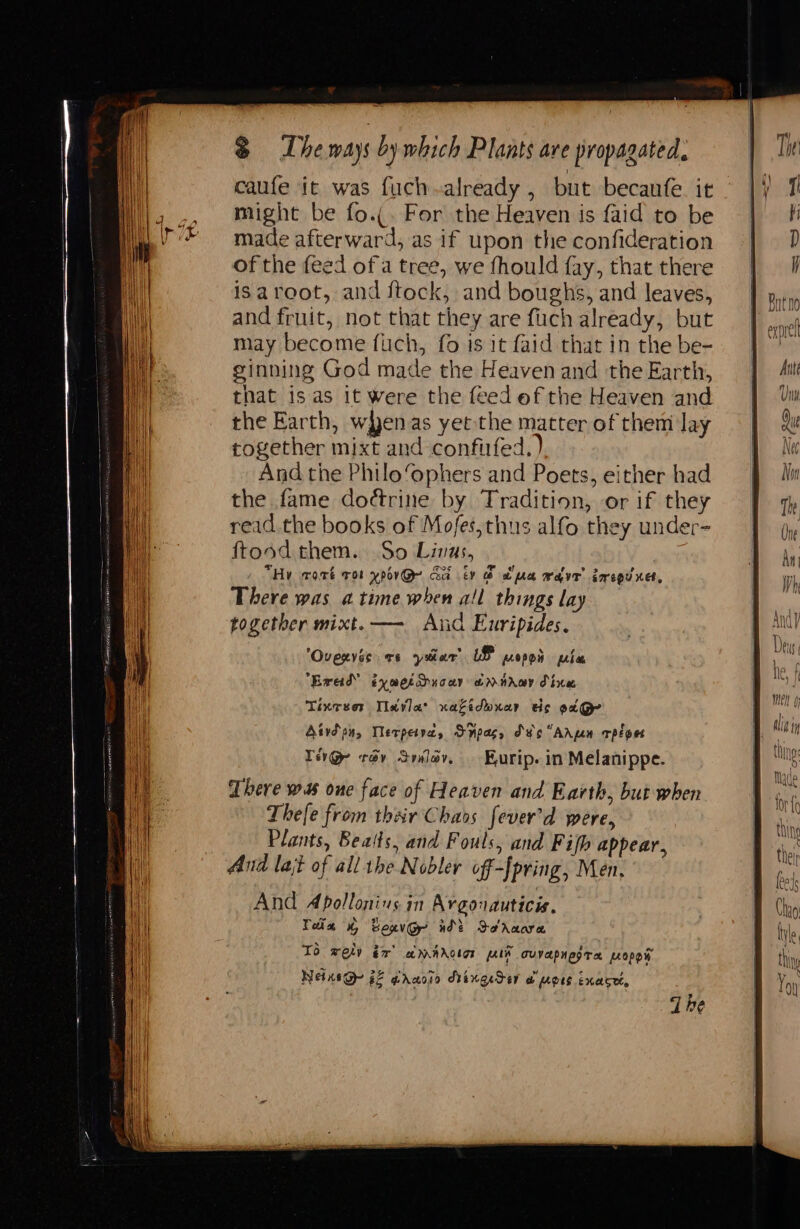 8 The ways by which Plants are propagated.
cauſe it was ſuch already, but becauſe it
might be ſo.( For the Heaven is ſaid to be
made afterward, as if upon the conſideration
of the ſeed of a tree, we ſhould ſay, that there
is a root, and ſtock, and boughs, and leaves,
and fruit, not that they are ſuch already, but
may become ſuch, ſo is it ſaid that in the be-
ginning God made the Heaven and the Earth,
that is as it were the ſeed of the Heaven and
the Earth, when as yet the matter of them lay
together mixt and confuſed.)
And the Philoſophers and Poets, either had
the ſame doctrine by Tradition, or if they
read the books of Moſes, thus alſo they under-
ſtood them. So Linus,
Ἦν ποτέ τοι χρόνος ἐν ᾧ ἅμα πάντ' ἐπεφύκει,
There was a time when all things lay
together mixt. — And Euripides.
Οὐρανός τε γαῖάτ' ἦν μορφὴ μία
Ἐπεὶδ' ἐχωρίσθησαν ἀλλήλων δίχα
Τίκτουσι Πάντα· εἰς φάος
Δένδρη, Πετεινά, Θῆρας, Ἅλμη τρέφει
Γένος τῶν θνητῶν. Eurip. in Melanippe.
There was one face of Heaven and Earth, but when
Theſe from their Chaos ſever'd were,
Plants, Beaſts, and Fouls, and Fiſh appear,
And laſt of all the Nobler off-ſpring, Men.
And Apollonius in Argonauticis.
Γαῖα καὶ οὐρανὸς ἠδὲ θάλασσα
Τὸ πρὶν ἐπ' ἀλλήλοισι μιῇ συναρηρότα μορφῇ
Νείκεος ἐξ ὀλοοῖο διέκριθεν ἀμφὶς ἕκαστα.
The